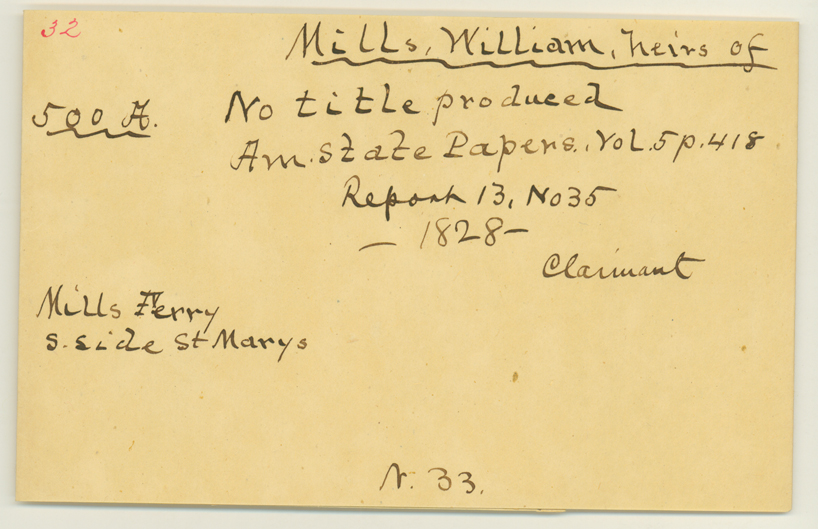 32
Mills, William, heirs of
500 A. No title produced
Am. State Papers., Vol. 5 p. 418
Report 13, No 35
— 1828 —
Claimant
Mills Ferry
S. side St Marys
N. 33.